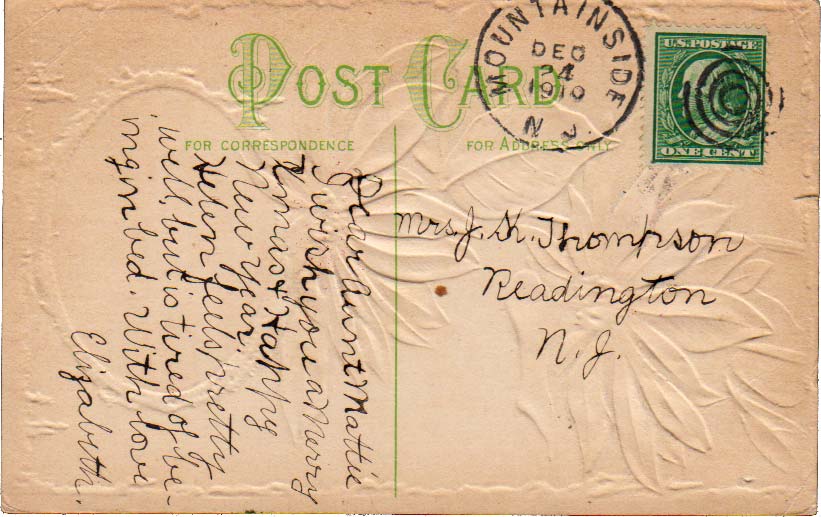 POST CARD
FOR CORRESPONDENCE
FOR ADDRESS ONLY
MOUNTAINSIDE
DEC
24
1910
N. J.
U.S. POSTAGE
ONE CENT
Mrs. J. K. Thompson
Readington
N. J.
Dear Aunt Mattie
I wish you a Merry
Xmas & Happy
New Year.
Helen feels pretty
well, but is tired of be-
ing in bed. With love
Elizabeth.